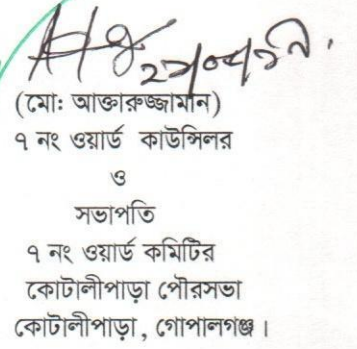 (মোঃ আক্তারুজ্জামান)
৭ নং ওয়ার্ড কাউন্সিলর
ও
সভাপতি
৭ নং ওয়ার্ড কমিটির
কোটালীপাড়া পৌরসভা
কোটালীপাড়া, গোপালগঞ্জ।